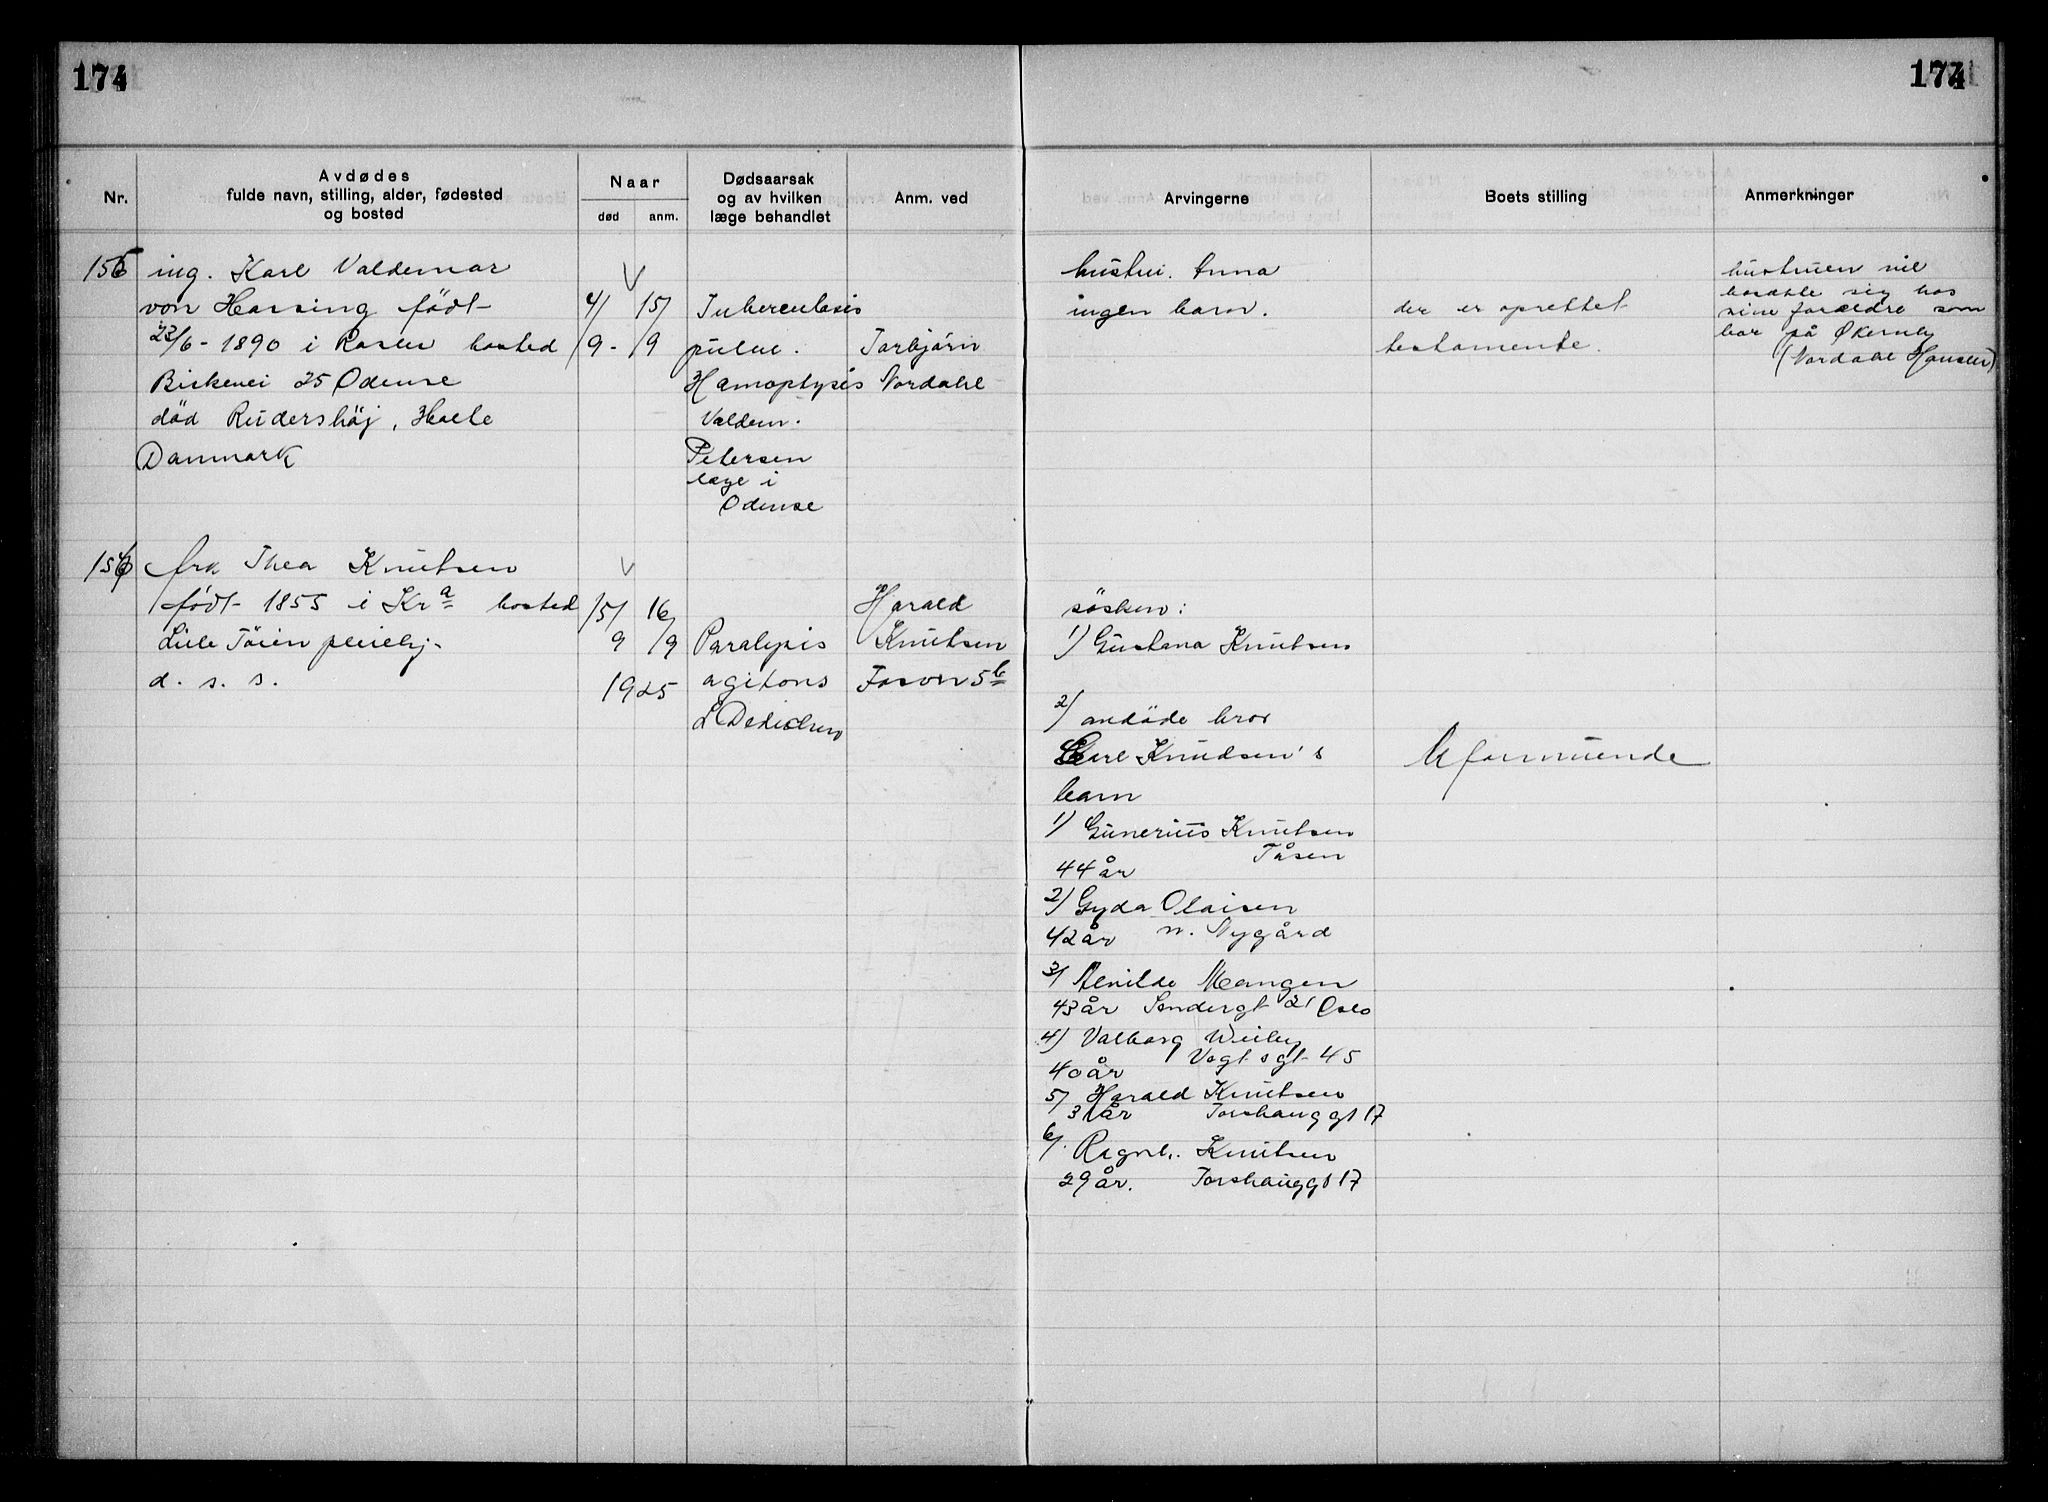 174
174
Nr.
Avdødes
fulde navn, stilling, alder, fødested
og bosted
Naar
død
anm.
Dødsaarsak
og av hvilken
læge behandlet
Anm. ved
Arvingerne
Boets stilling
Anmerkninger
155 ing. Karl Valdemar
von Hassing født
23/6 - 1890 i bosted
Birkevei 25 Odense
død Rudershøj, Holte
Danmark
4/
9 -
15/
/9
Tuberculosis
pulm.
Hæmoptysis
Valdem.
Petersen
læge i
Odense
Torbjörn
Nordahl
hustru. Anna
ingen barn.
der er oprettet
testamente.
hustruen vil
bosætte sig hos
sine forældre som
bor på Økernby
(Nordahl Hansen)
156 frk Thea Knutsen
født 1855 i Kra bosted
Lille Töien pleiehj.
d. s. s.
15/
9
16
/9
1925
Paralysis
agitans
L Dedichen
Harald
Knutsen
5b
søsken:
1) Gustava Knutsen
2) avdöde bror
Carl Knudsen's
barn
1) Gunerius Knutsen
Tåsen
44 år
2) Gyda Olaisen
42 år n. Nygård
3) Alvilde Mangen
43 år Søndergt 21 Oslo
4) Valborg Wiiby
Vogtsgt 45
40 år
5) Harald Knutsen
31 år Torshauggt 17
6) Ragnh. Knutsen
29 år. Torshauggt 17
Uformuende